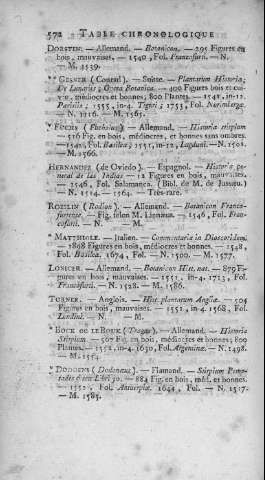 572 TABLE CHRONOLOGIQUE
DORSTEN. — Allemand. — Botanicon. — 295 Figures en
bois, — 1540, Fol. Francofurti. — N.
— M. 1539.
* GESNER (Conrad). — Suisse. — Plantarum Historia;
De Lunariis; Opera Botanica. — 400 Figures bois et cui-
vre, médiocres et bonnes, 800 Plantes. — 1541, in-12,
Parisiis; 1555, in-4. Tiguri; 1753, Fol. Norimbergæ.
— N. 1516. — M. 1565.
* FUCHS (Fuchsius) — Allemand. — Historia stirpium
— 516 Fig. en bois, médiocres, et bonnes sans ombres.
— 1542, Fol. Basileæ; 1551, in-12, Lugduni. — N. 1501.
— M. 1566.
HERNANDEZ (de Oviedo). — Espagnol. — Historia ge-
neral de las Indias — 12 Figures en bois, mauvaises.
— 1546, Fol. Salamanca. (Bibl. de M. de Jussieu.)
— N. 1514. — 1564. Très-rare.
ROESLIN (Rodion). — Allemand. — Botanicon Franco-
furtense. — Fig. selon M. Linnæus. — 1546, Fol. Fran-
cofurti. — N. — M.
* MATTHIOLE. — Italien. — Commentaria in Dioscoridem.
— 1898 Figures en bois, médiocres et bonnes. — 1548,
Fol. Basileæ, 1674, Fol. — N. 1500. — M. 1577.
LONICER. — Allemand. — Botanicon Hist. nat. — 879 Fi-
gures en bois, mauvaises. — 1551, — 1713, Fol.
Francofurti. — N. 1528. — M. 1586.
TURNER. — Anglois. — Hist. plantarum Angliæ. — 504
Figures en bois, mauvaises. — 1551, in-4. 1568, Fol.
Londini. — N. — M.
* BOCK ou LE BOUK (Tragus). — Allemand. — Historia
Stirpium. — 567 Fig. en bois, médiocres et bonnes, 800
Plantes. — 1552, in-4. 1630, Fol. Argentinæ. — N. 1498.
— M. 1554.
* DODOENS (Dodonæus). — Flamand. — Stirpium Pemp-
tades sive Libri 30. — 884 Fig. en bois, méd. et bonnes.
— 1552, Fol. Antverpiæ, 1644, Fol. — N. 1517.
— M. 1585.